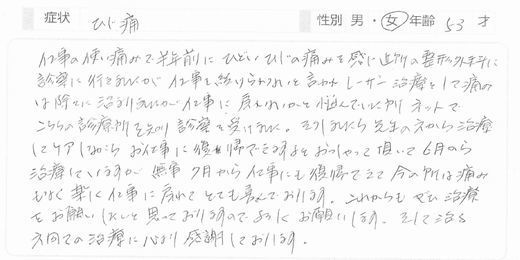 症状 ひじ痛 性別 男・女 年齢 53 才
仕事の使い痛みで半年前にひどいひじの痛みを感じ近所の整形外科に
診察に行きましたが 仕事を続けられないと言われ レーザー治療をして痛み
は除々に治まりましたが仕事に戻れないかと悩んでいた所 ネットで
こちらの診療所を知り 診察を受けました。そうしましたら 先生の方から治療
してケアしながら お仕事に復帰できますよとおっしゃって頂いて 6月から
治療していますが 無事 7月から仕事にも復帰できて 今の所は痛み
もなく 楽に仕事に戻れて とても喜んでおります。これからもぜひ治療
をお願いしたいと思っておりますので よろしくお願いします。そして治る
方向での治療に心より感謝しております。